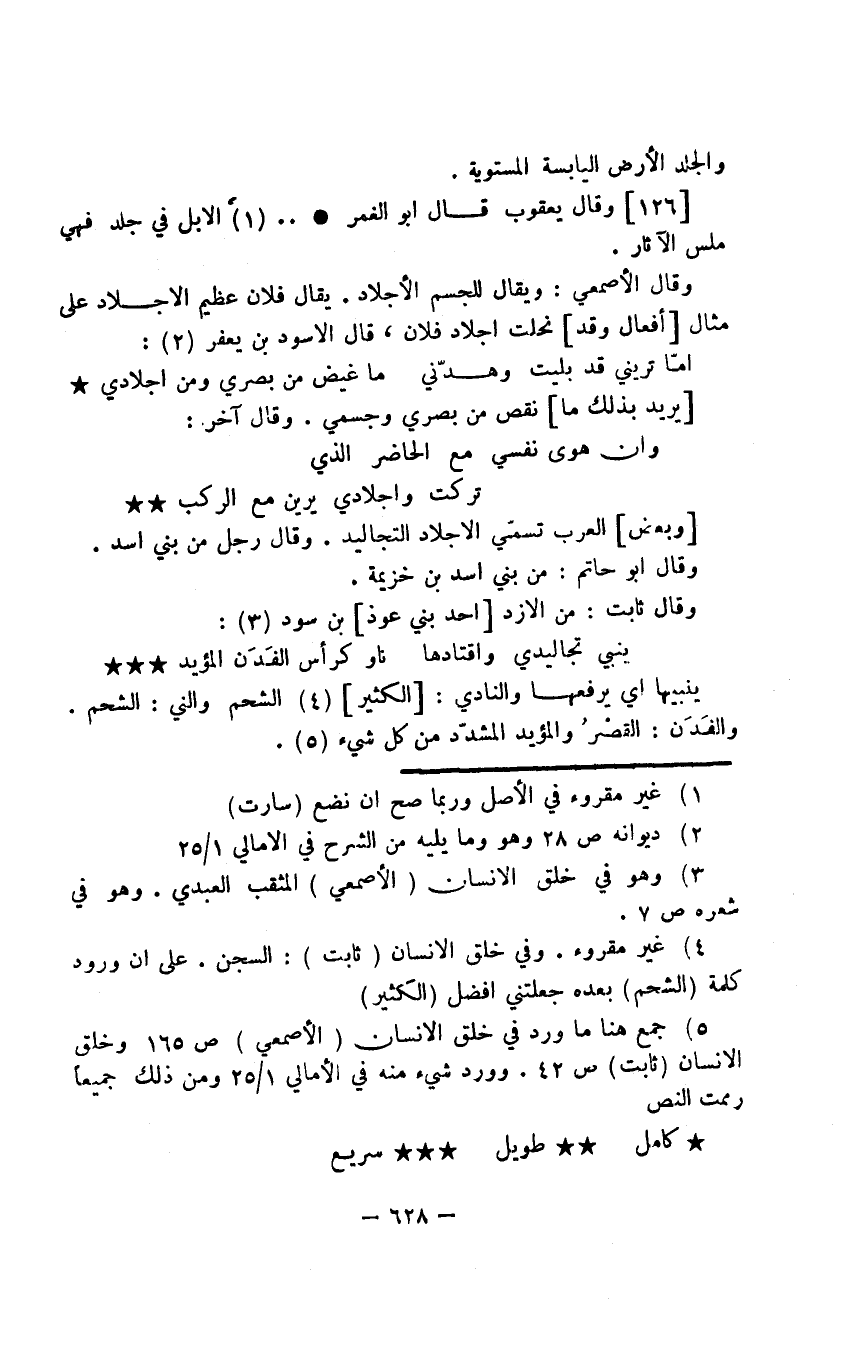 والجلد الأرض اليابسة المستوية .
[١٢٦] وقال يعقوب قال ابو الغمر ● .. (١) الابل في جلد فهي
ملس الآثار .
وقال الأصمعي : ويقال للجسم الأجلاد . يقال فلان عظيم الاجلاد على
مثال [أفعال وقد] نحلت اجلاد فلان ، قال الاسود بن يعفر (٢) :
امّا تريني قد بليت وهدّني ما غيض من بصري ومن اجلادي ★
[يريد بذلك ما] نقص من بصري وجسمي . وقال آخر :
وان هوى نفسي مع الحاضر الذي
تركت واجلادي يرين مع الركب ★★
[وبعض] العرب تسمّي الاجلاد التجاليد . وقال رجل من بني اسد .
وقال ابو حاتم : من بني اسد بن خزيمة .
وقال ثابت : من الازد [احد بني عوذ] بن سود (٣) :
ينبي تجاليدي واقتادها ناو كرأس الفَدَن المؤيد ★★★
ينبيها اي يرفعها والنادي : [الكثير] (٤) الشحم والني : الشحم .
والفَدَن : القصْرُ والمؤيد المشدّد من كل شيء (٥) .
١) غير مقروء في الأصل وربما صح ان نضع (سارت)
٢) ديوانه ص ٢٨ وهو وما يليه من الشرح في الامالي ٢٥/١
٣) وهو في خلق الانسان ( الأصمعي ) المثقب العبدي . وهو في
شعره ص ٧ .
٤) غير مقروء . وفي خلق الانسان ( ثابت ) : السجن . على ان ورود
كلمة (الشحم) بعده جعلتني افضل (الكثير)
٥) جمع هنا ما ورد في خلق الانسان ( الأصمعي ) ص ١٦٥ وخلق
الانسان (ثابت) ص ٤٢ . وورد شيء منه في الأمالي ٢٥/١ ومن ذلك جميعاً
رممت النص
★ كامل ★★ طويل ★★★ سريع
– ٦٢٨ –